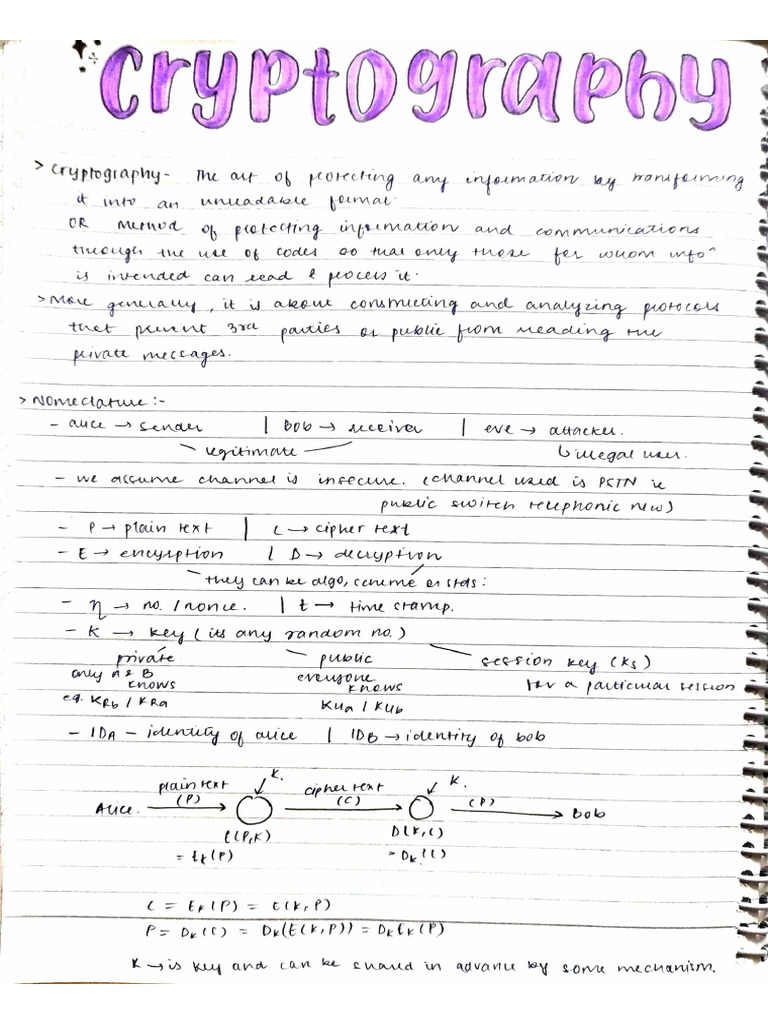 Cryptography
> Cryptography - The art of protecting any information by transforming
it into an unreadable format.
OR Method of protecting information and communications
through the use of codes so that only those for whom infoⁿ
is intended can read & process it.
> More generally, it is about constructing and analyzing protocols
that prevent 3rd parties or public from reading the
private messages.
> Nomeclature :-
- alice → sender | bob → receiver | eve → attacker.
legitimate ↳ illegal user.
- we assume channel is insecure. (channel used is PSTN ie
public switch telephonic new)
- P → plain text | C → cipher text
- E → encysption | D → decryption
they can be algo, scheme or stds :
- η → no. / nonce. | t → time stamp.
- K → key ( its any random no. )
private public session key (Ks)
only A & B everyone for a particular session
knows knows
eg. KRb / KRa KUa / KUb
- IDA - identity of alice | IDB → identity of bob
plain text K. cipher text K.
Alice (P) (C) (P) Bob
E(P,K) D(K,C)
= EK(P) = DK(C)
C = EK(P) = E(K,P)
P = DK(C) = DK(E(K,P)) = DKEK(P)
K → is key and can be shared in advance by some mechanism.